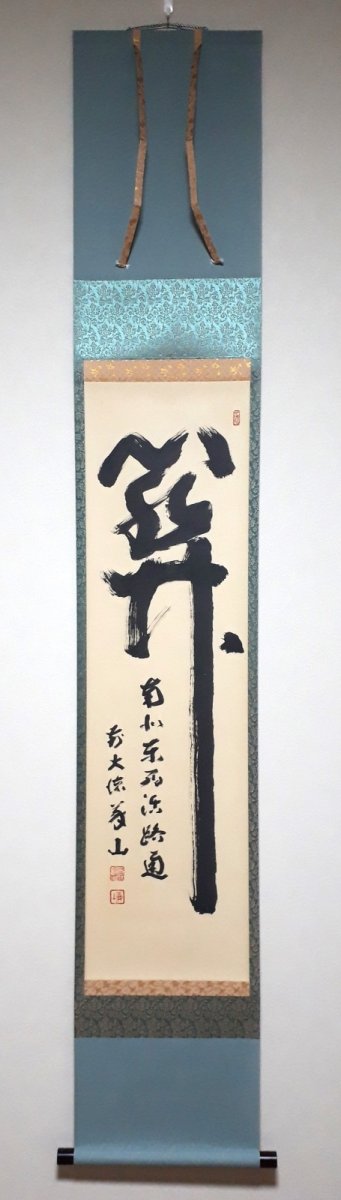 関
南北東西活路通
前大徳義山